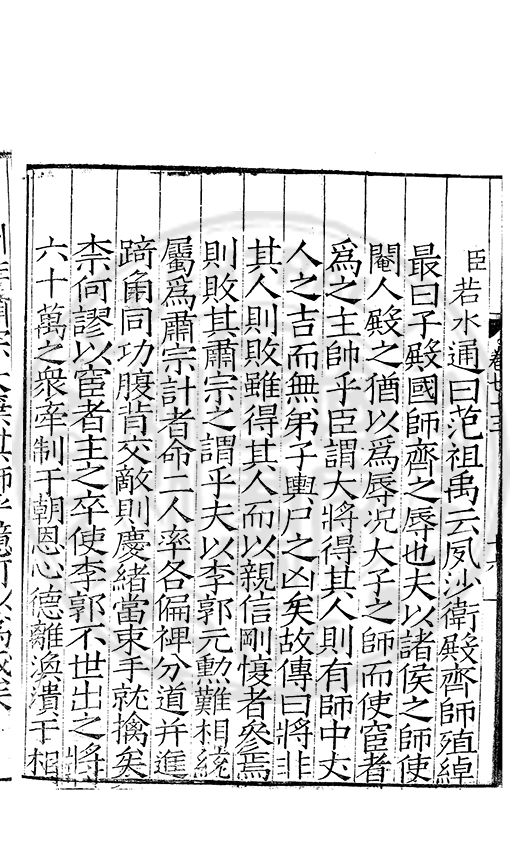 臣若水通曰范祖禹云夙沙衛殿齊師殖綽
最曰子殿國師齊之辱也夫以諸侯之師使
閹人殿之猶以爲辱况大子之師而使宦者
爲之主帥乎臣謂大將得其人則有師中丈
人之吉而無弟子輿尸之凶矣故傳曰將非
其人則敗雖得其人而以親信剛愎者參焉
則敗其肅宗之謂乎夫以李郭元勲難相統
屬爲肅宗計者命二人率各偏裨分道并進
踦角同功腹背交敵則慶緒當束手就擒矣
柰何謬以宦者主之卒使李郭不世出之將
六十萬之衆牽制于朝恩心德離渙潰于相
卷七十三